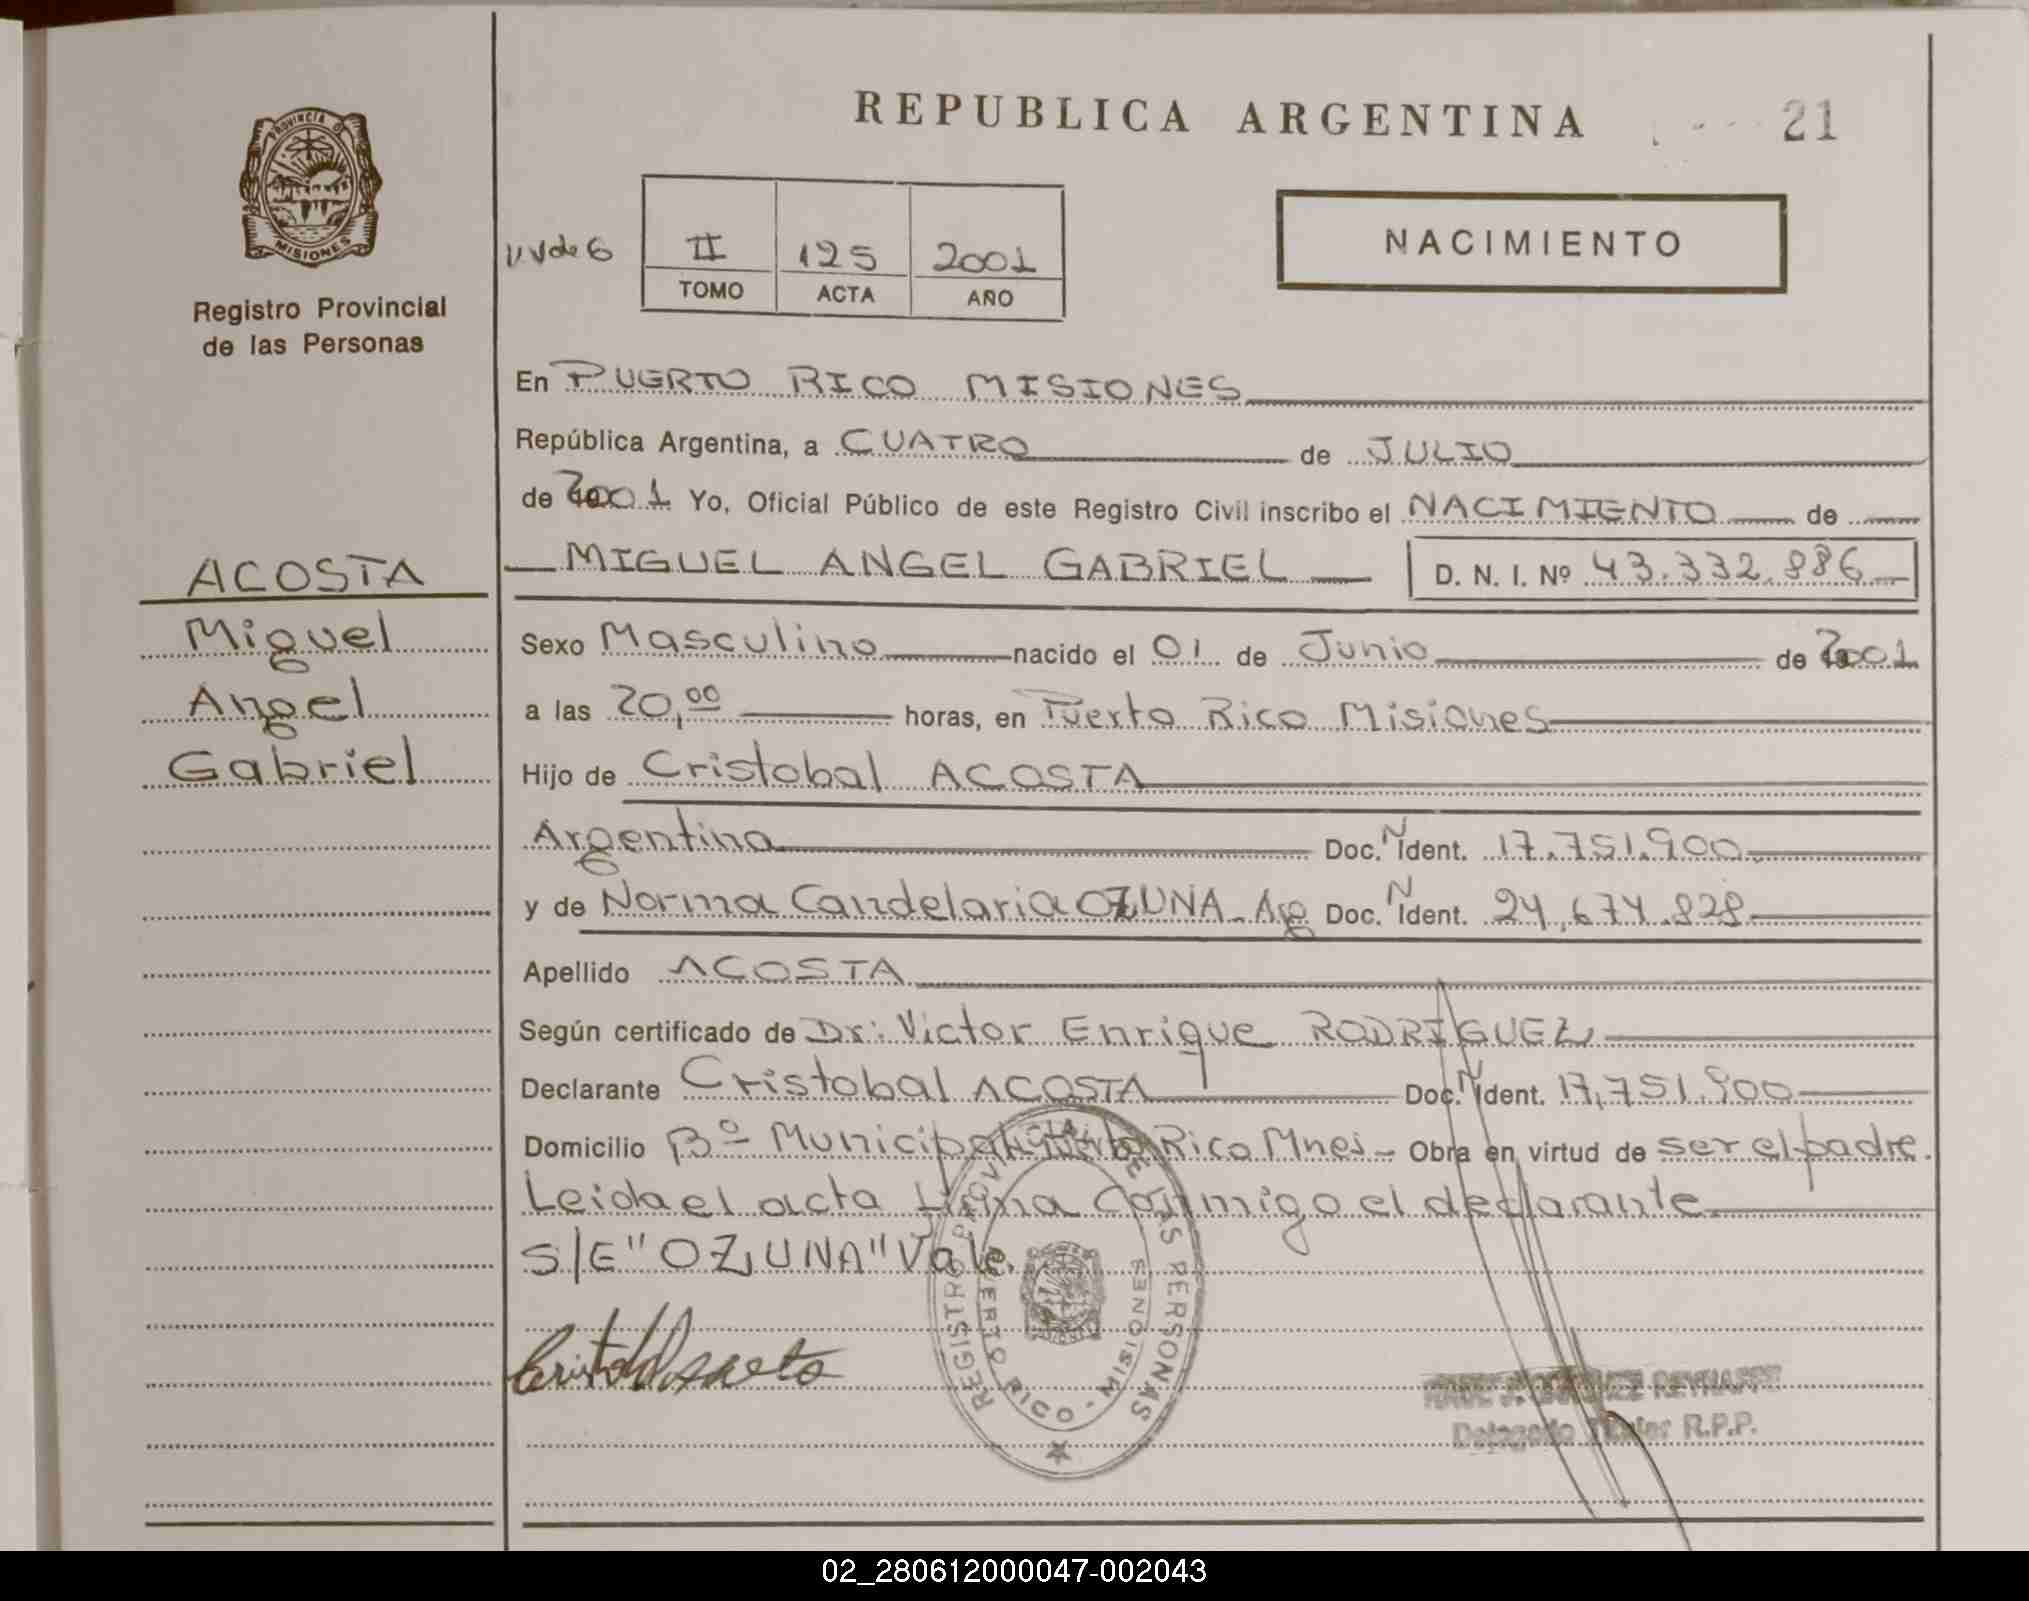 REPUBLICA ARGENTINA 21
PROVINCIA DE
MISIONES
Registro Provincial
de las Personas
II 125 2001
TOMO ACTA AÑO
NACIMIENTO
En PUERTO RICO MISIONES
República Argentina, a CUATRO de JULIO
de 2001 Yo, Oficial Público de este Registro Civil inscribo el NACIMIENTO de
MIGUEL ANGEL GABRIEL D. N. I. Nº 43.332.886
ACOSTA
Miguel
Angel
Gabriel
Sexo Masculino nacido el 01 de Junio de 2001
a las 20,00 horas, en Puerto Rico Misiones
Hijo de Cristobal ACOSTA
Argentina Doc. N Ident. 17.751.900
y de Norma Candelaria OZUNA - Arg Doc. N Ident. 24,674.828
Apellido ACOSTA
Según certificado de Dr: Victor Enrique RODRIGUEZ
Declarante Cristobal ACOSTA Doc. N Ident. 17,751.900
Domicilio Bº Municipal Puerto Rico Mnes - Obra en virtud de ser el padre.
Leida el acta firma conmigo el declarante
S/E "OZUNA" Vale.
REGISTRO PROVINCIAL DE LAS PERSONAS
PUERTO RICO - MISIONES
Delegado Titular R.P.P.
02_280612000047-002043